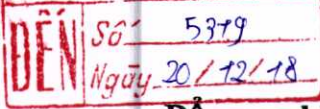 ĐẾN
Số 5379
Ngày 20/12/18